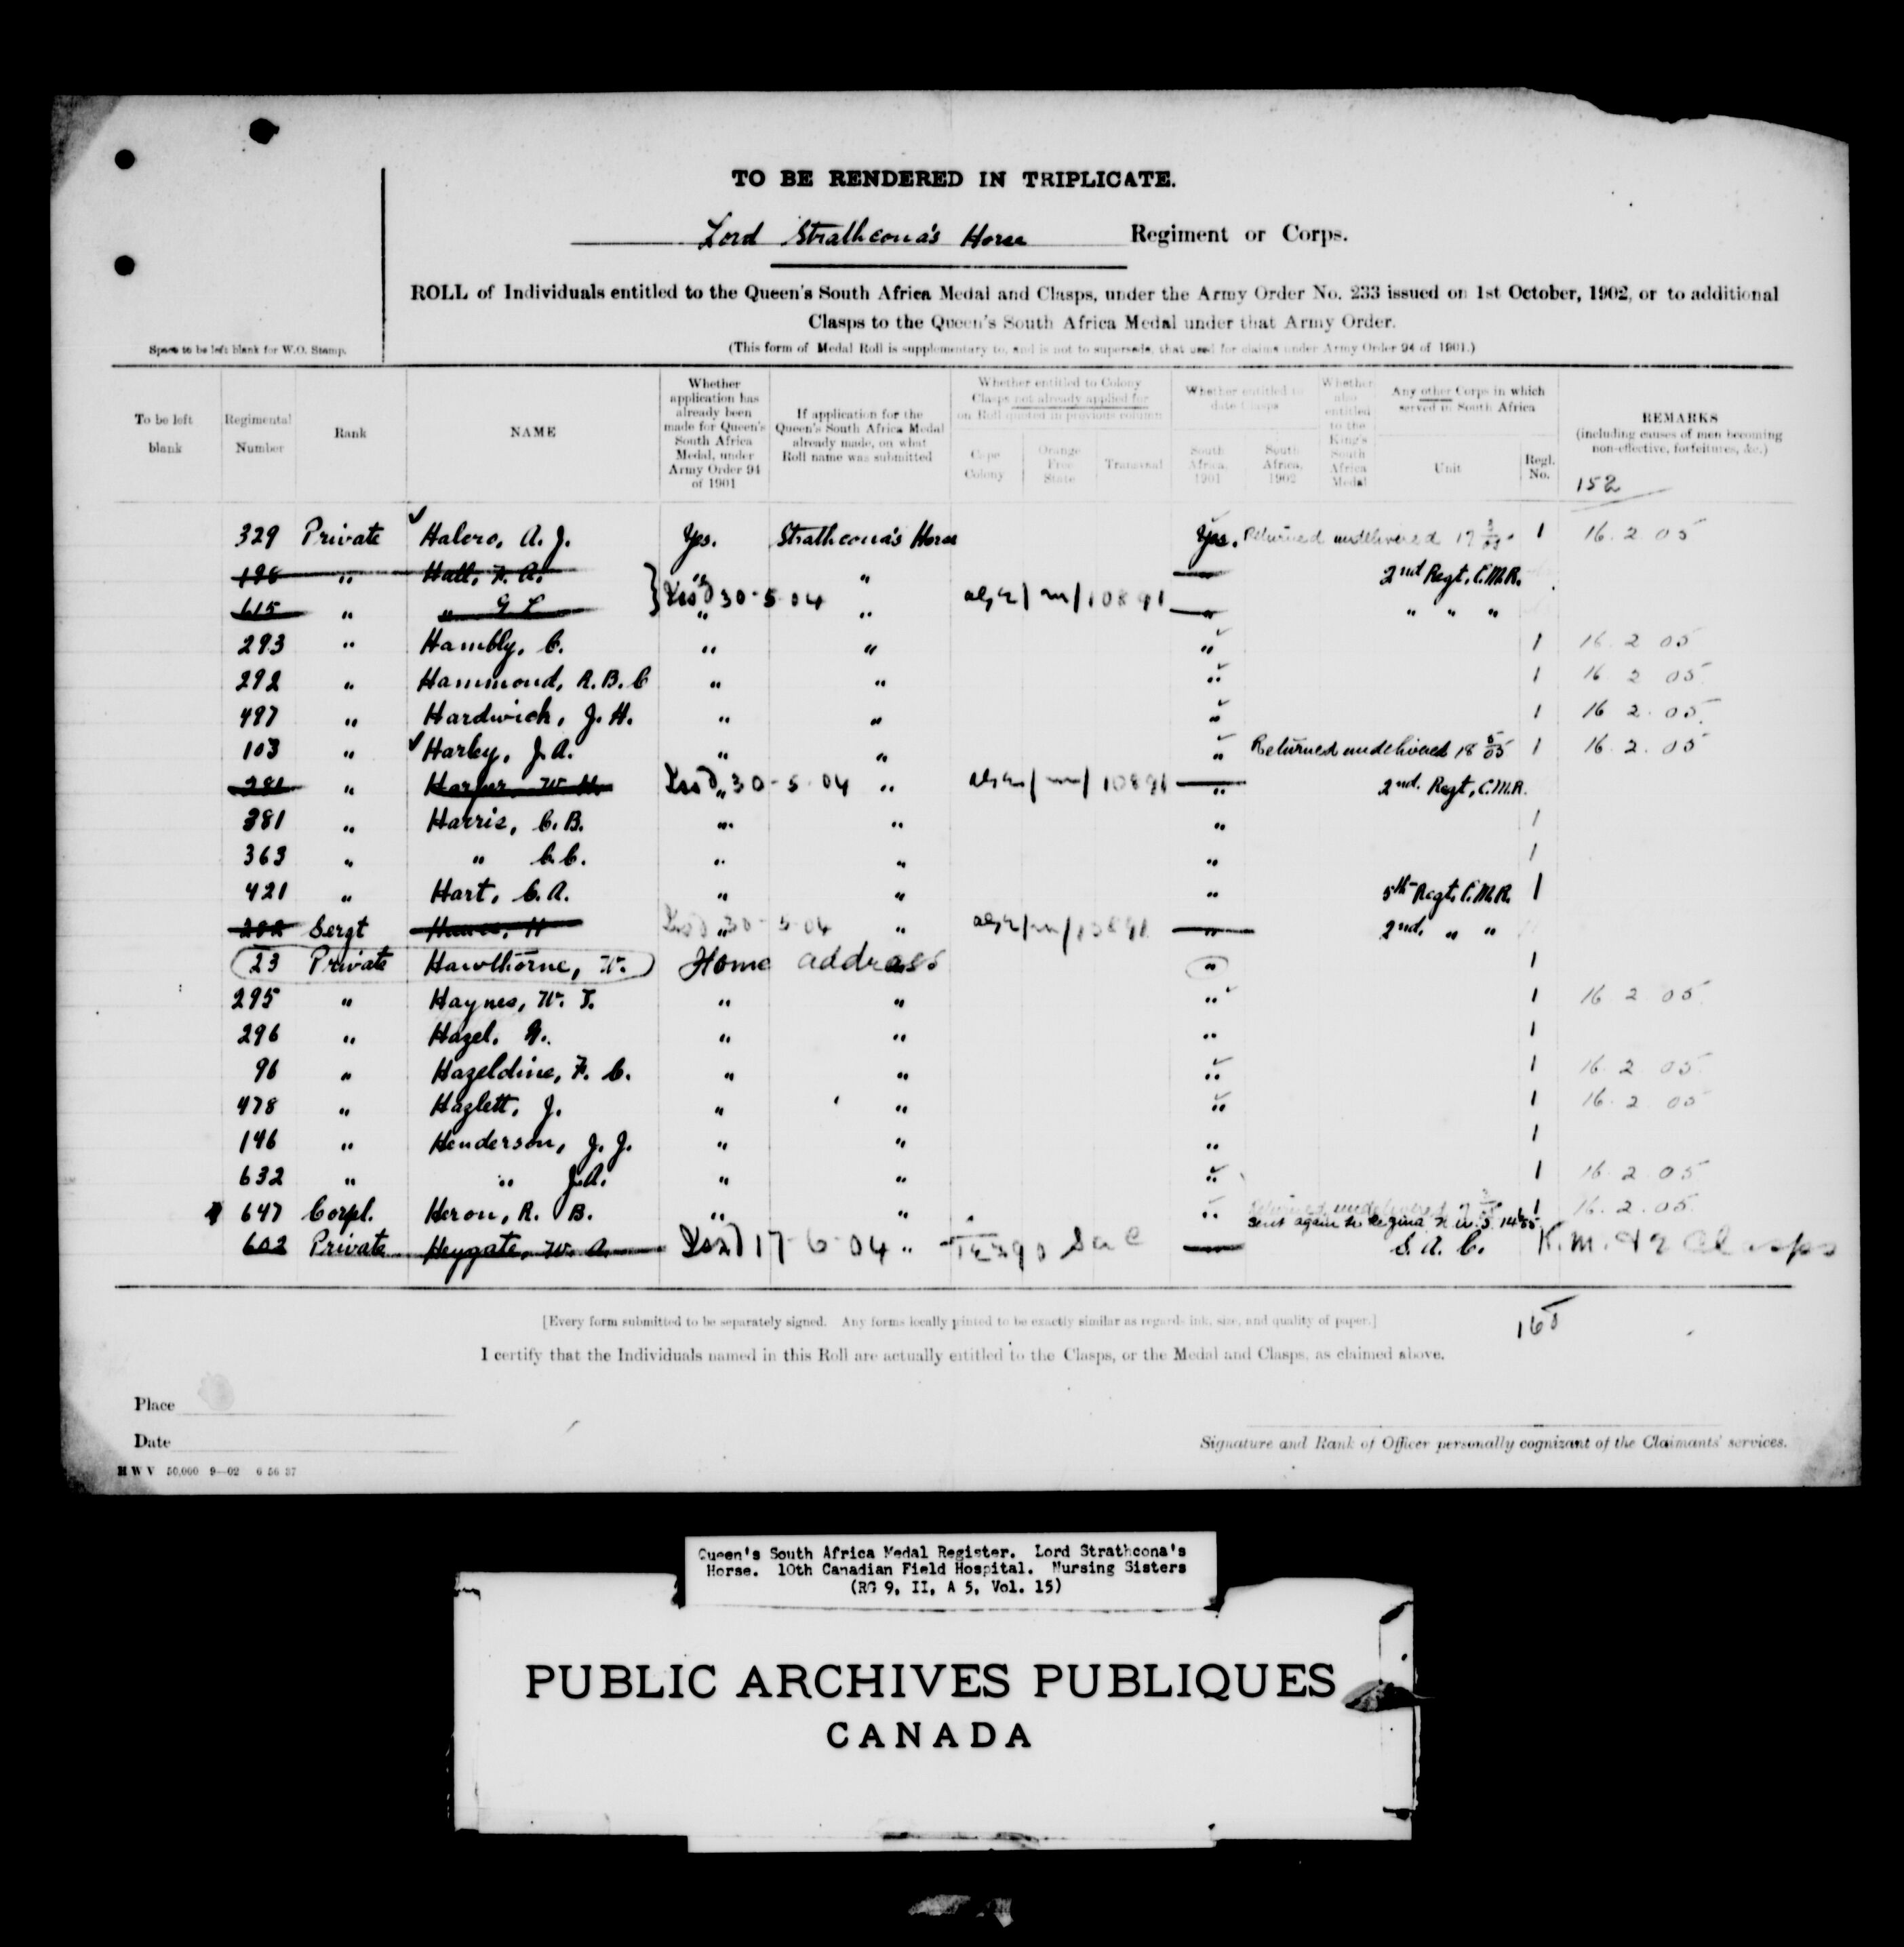 TO BE RENDERED IN TRIPLICATE.
Lord Strathcona's Horse Regiment or Corps.
ROLL of Individuals entitled to the Queen's South Africa Medal and Clasps, under the Army Order No. 233 issued on 1st October, 1902, or to additional
Clasps to the Queen's South Africa Medal under that Army Order.
Space to be left blank for W.O. Stamp.
(This form of Medal Roll is supplementary to, and is not to supersede, that used for claims under Army Order 94 of 1901.)
To be left blank
Regimental Number
Rank
NAME
Whether application has already been made for Queen's South Africa Medal, under Army Order 94 of 1901
If application for the Queen's South Africa Medal already made, on what Roll name was submitted
Whether entitled to Colony Clasps not already applied for on Roll quoted in previous column
Cape Colony
Orange Free State
Transvaal
Whether entitled to date Clasps
South Africa, 1901
South Africa, 1902
Whether also entitled to the King's South Africa Medal
Any other Corps in which served in South Africa
Unit
Regl. No.
REMARKS
(including causes of men becoming non-effective, forfeitures, &c.)
152
329 Private Halcro, A. J. Yes. Strathcona's Horse Yes. Returned undelivered 1 16.2.05
198 " Hall, F. A. " " 2nd Regt, C.M.R.
615 " " G L Issd 30-5-04 " 10891 " " " "
293 " Hambly, C. " " " 1 16 2 05
292 " Hammond, R. B. C " " " 1 16 2 05
497 " Hardwick, J. H. " " " 1 16 2. 05
103 " Harley, J. A. " " " Returned undelivered 18 5/05 1 16.2.05
281 " Harper, W. H. Issd 30-5-04 " 10891 " 2nd. Regt, C.M.R.
381 " Harris, C. B. " " " 1
363 " " C. C. " " " 1
421 " Hart, C. A. " " " 5th Regt. C.M.R. 1
202 Sergt Issd 30-5-04 " 10891 " 2nd. " "
23 Private Hawthorne, W. Home address " 1
295 " Haynes, W. T. " " " 1 16 2 05
296 " Hazel, G. " " " 1
96 " Hazeldine, F. C. " " " 1 16.2 05
478 " Hazlett, J. " " " 1 16.2 05
146 " Henderson, J. J. " " " 1
632 " " J.A. " " " 1 16 2 05
647 Corpl. Heron, R. B. " " " Returned undelivered 1 16.2.05
sent again to Regina N.W.T.
602 Private Heygate, W. A. Issd 17-6-04 " SAC S. A. C. K.M. & 2 Clasps
[Every form submitted to be separately signed. Any forms locally printed to be exactly similar as regards ink, size, and quality of paper.]
165
I certify that the Individuals named in this Roll are actually entitled to the Clasps, or the Medal and Clasps, as claimed above.
Place
Date
Signature and Rank of Officer personally cognizant of the Claimants' services.
H W V 50,000 9—02 6 56 37
Queen's South Africa Medal Register. Lord Strathcona's
Horse. 10th Canadian Field Hospital. Nursing Sisters
(RG 9, II, A 5, Vol. 15)
PUBLIC ARCHIVES PUBLIQUES
CANADA